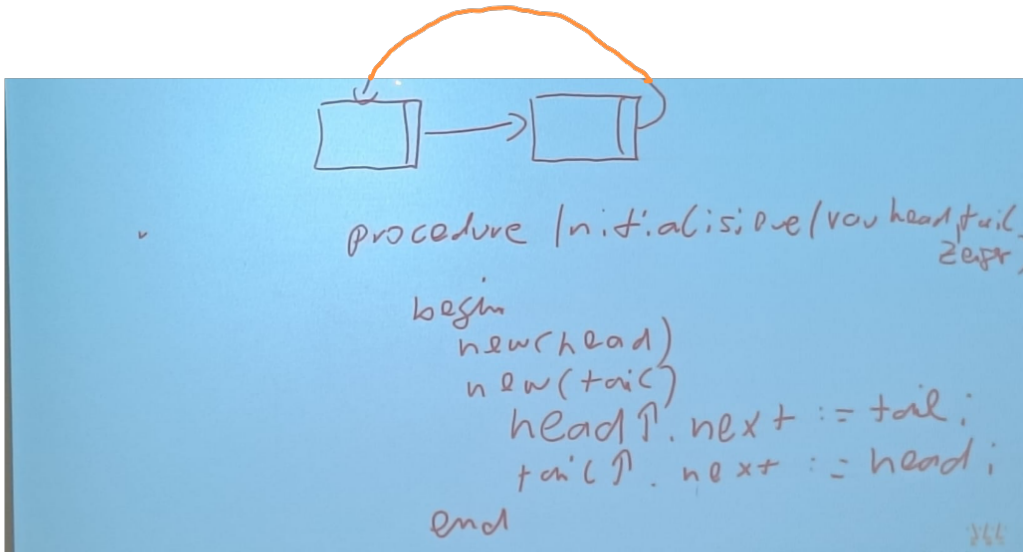 procedure Initialisiere(var head, tail
begin
new(head)
new(tail)
head↑.next := tail;
tail↑.next := head;
end